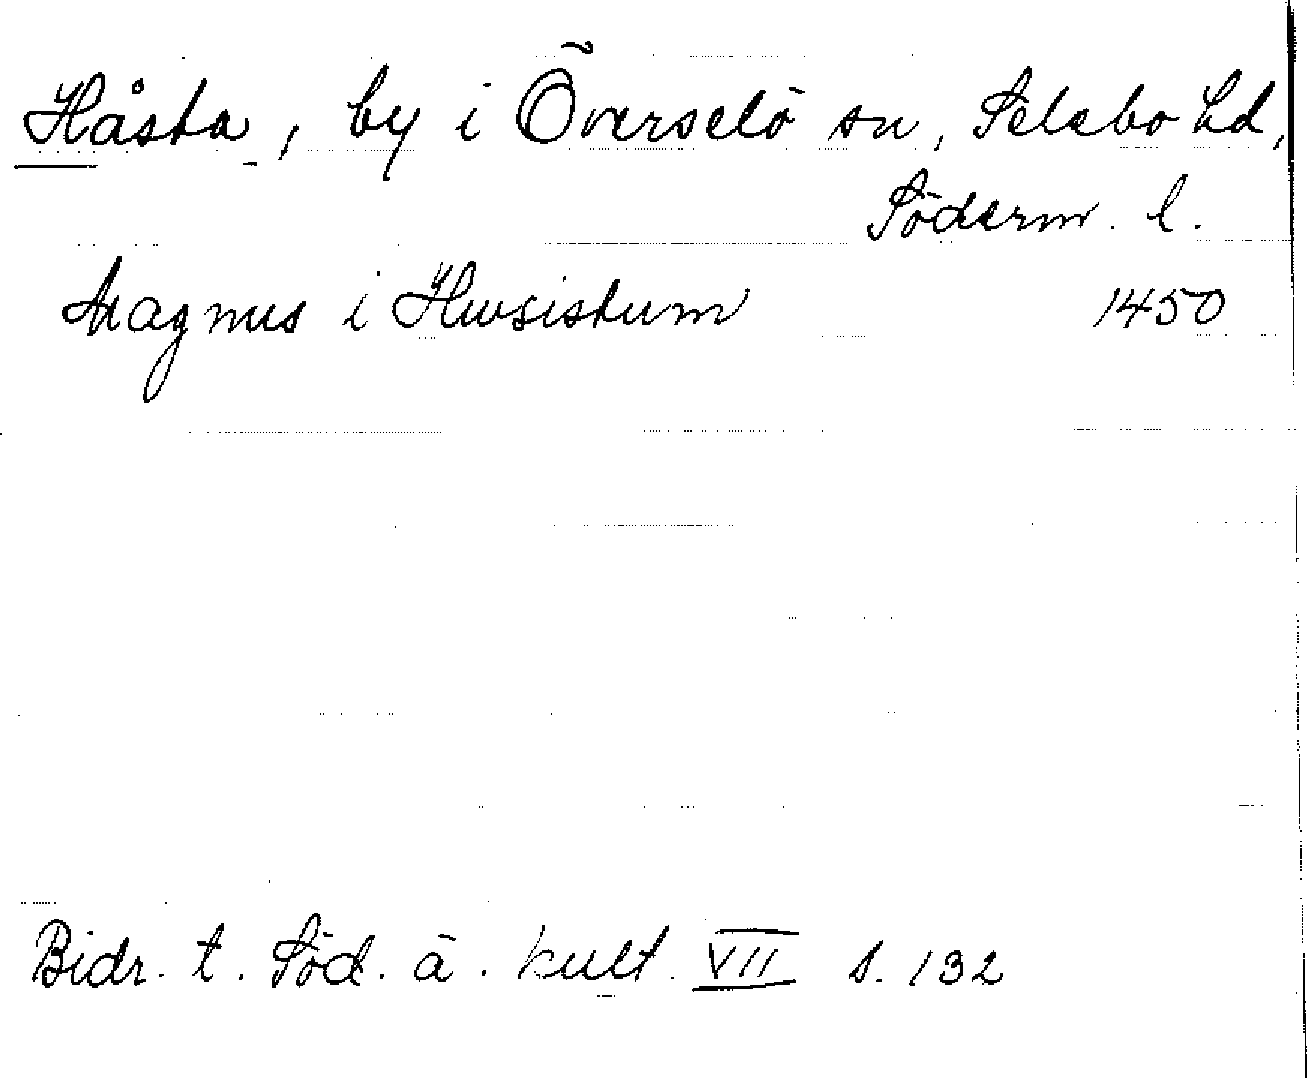 Håsta, by i Överselö sn, Selebo hd,
Söderm. l.
Magnus i Hwsistum 1450
Bidr. t. Söd. ä. kult. VII s. 132